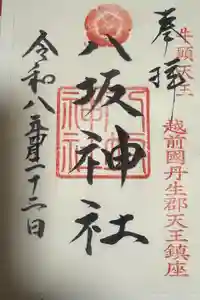 牛頭天王
越前國丹生郡天王鎮座
奉拝
八坂神社
令和八月十二日